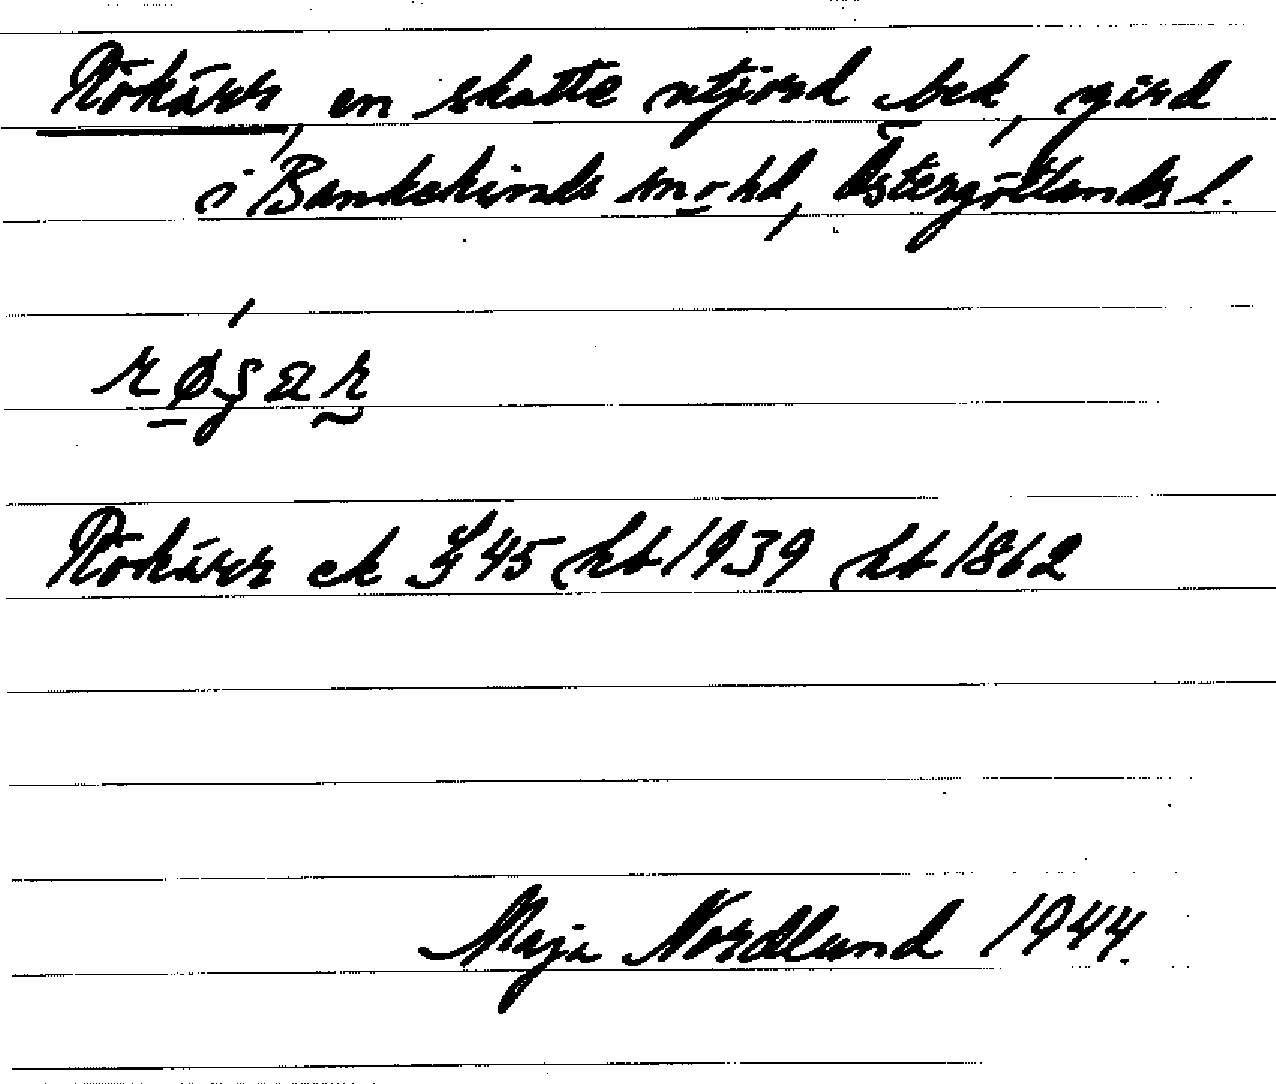 Rökärr, en skatte utjord bek, gård
i Bankekinds sn o hd, Östergötlands l.
Rökärr ek 45 hb 1939 hb 1862
Maja Nordlund 1944.